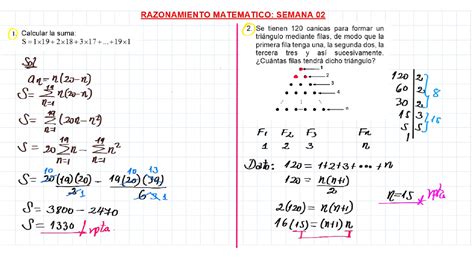 RAZONAMIENTO MATEMATICO: SEMANA 02
1. Calcular la suma:
S = 1×19 + 2×18 + 3×17 + ... + 19×1
Sol
an = n(20-n)
S = 19 Σ n=1 n(20-n)
S = 19 Σ n=1 (20n-n²)
S = 20 19 Σ n=1 n - 19 Σ n=1 n²
S = 20(19)(20)/2 - 19(20)(39)/6
10 1 10 13 1
S = 3800 - 2470
S = 1330 rpta
2. Se tienen 120 canicas para formar un
triángulo mediante filas, de modo que la
primera fila tenga una, la segunda dos, la
tercera tres y así sucesivamente.
¿Cuántas filas tendrá dicho triángulo?
1
2
3
4
120 2
60 2
30 2
15 3
5 5
1
8
15
F1 F2 F3 Fn
1 2 3 n
Dato: 120 = 1+2+3+ ... + n
120 = n(n+1)/2
2(120) = n(n+1)
16(15) = (n+1) n
n=15 rpta